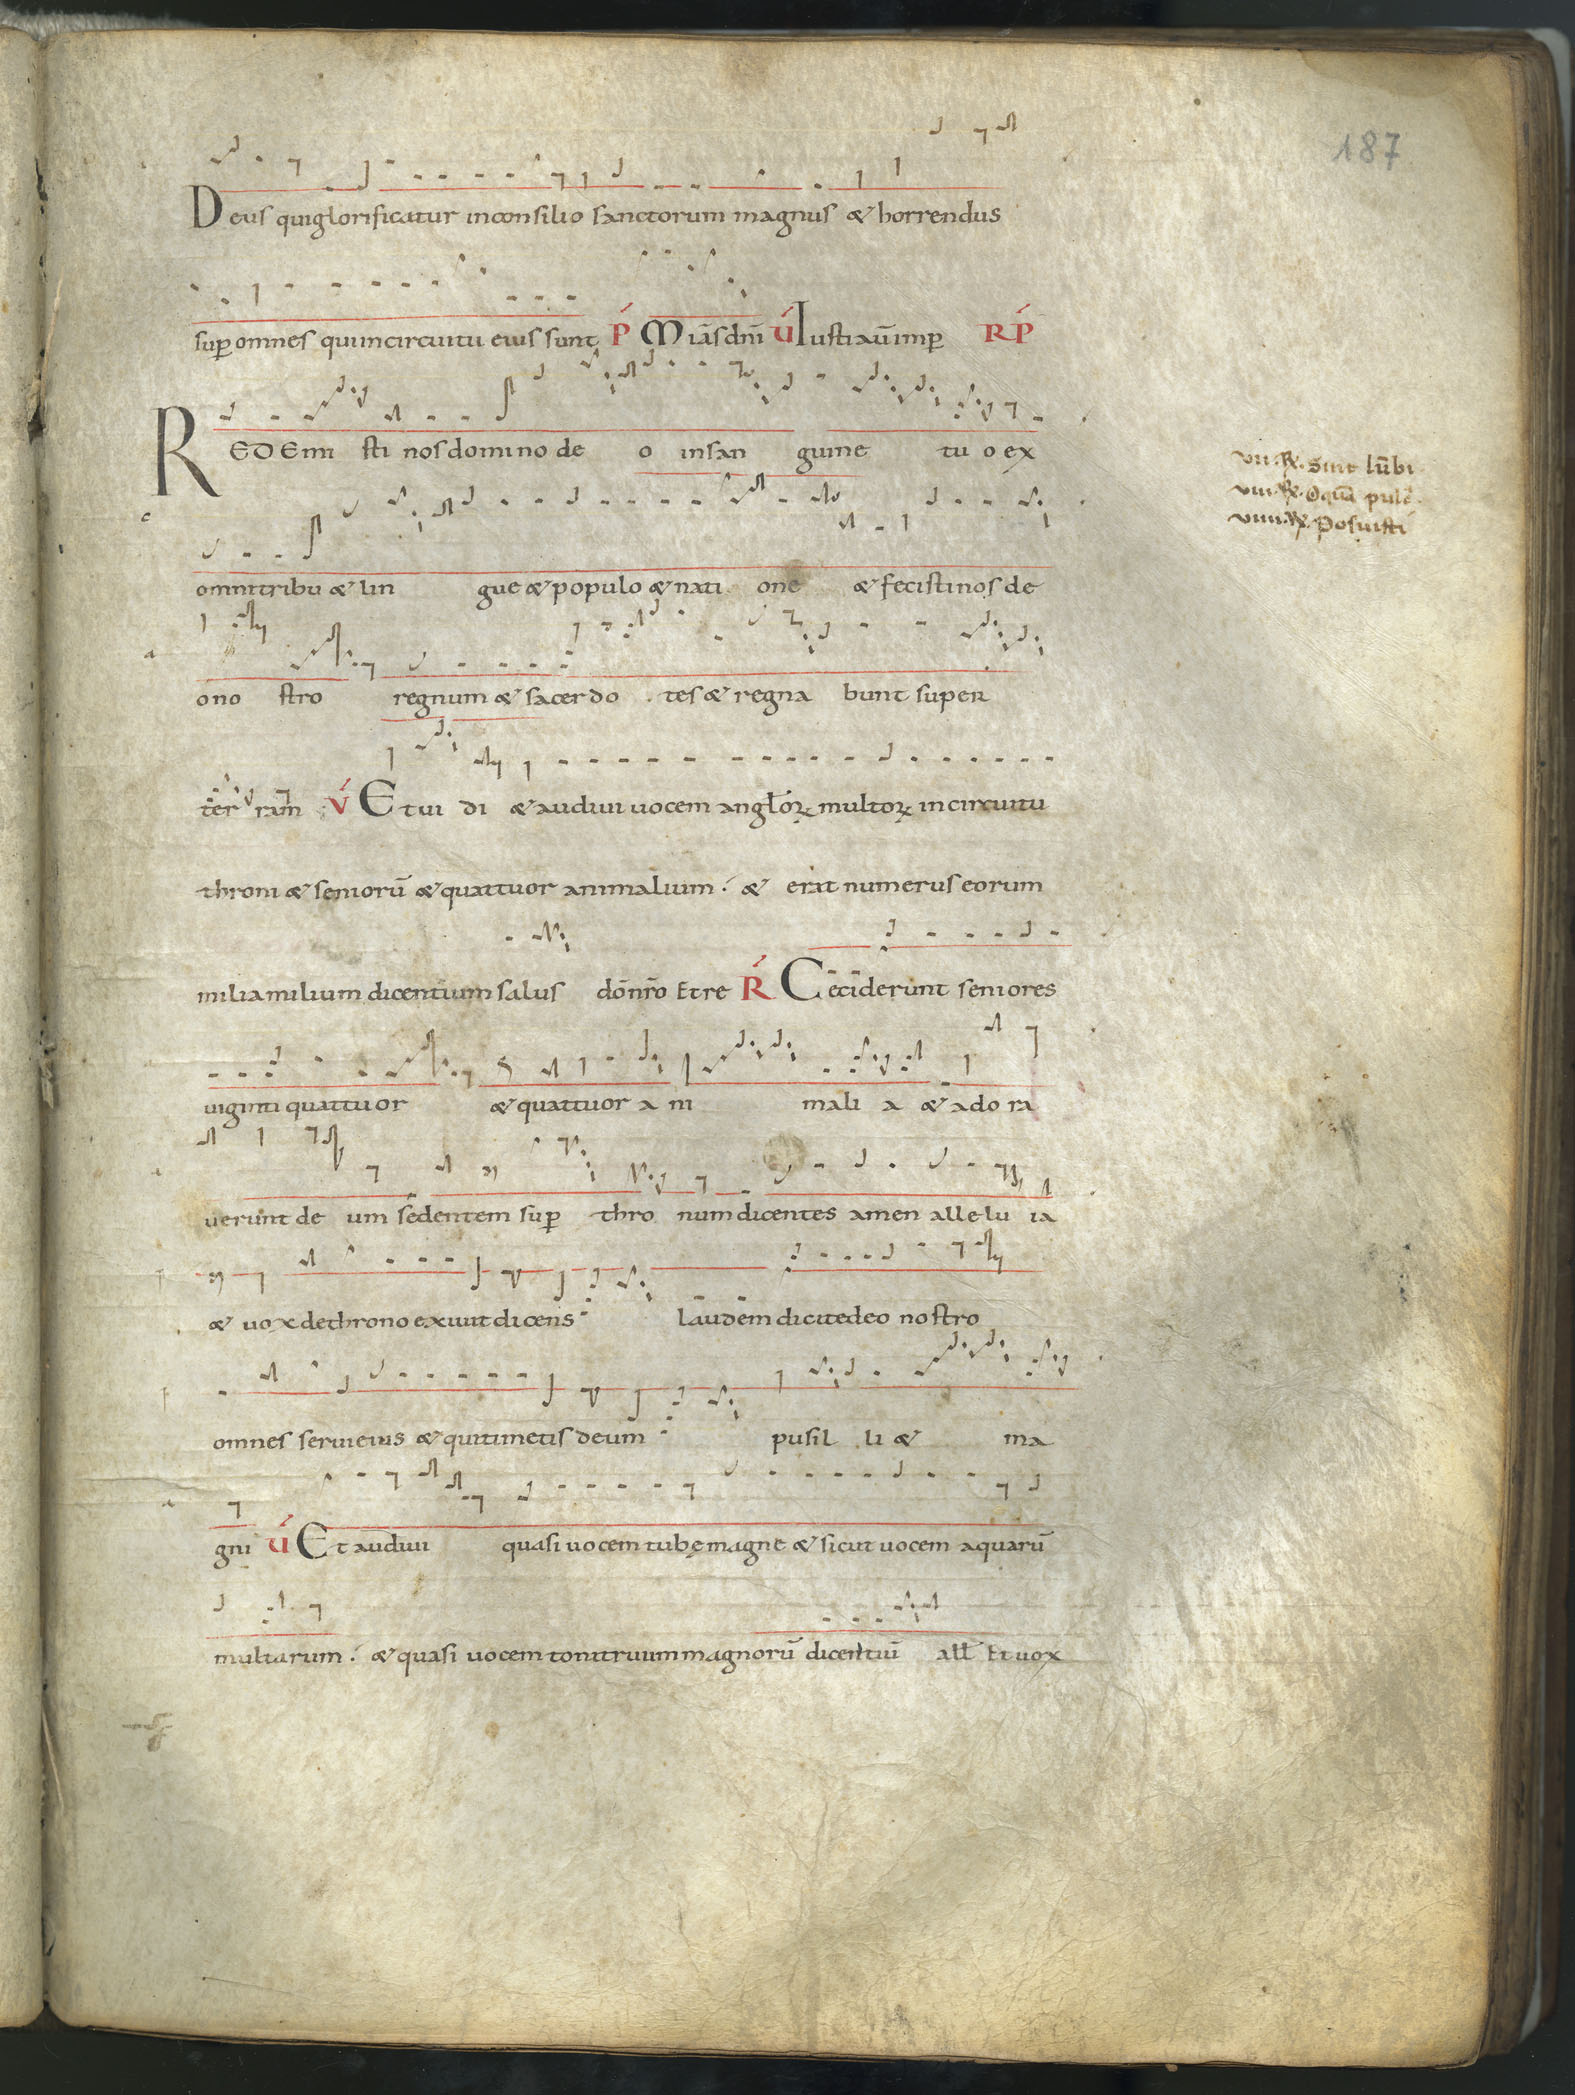 187
Deus qui glorificatur in consilio sanctorum magnus & horrendus
sup omnes qui in circuitu eius sunt P Miās dn̄i V Iusti aū in pp RP
REDEmi sti nos domino de o in san guine tu o ex
omni tribu & lin gue & populo & nati one & fecisti nos de
o no stro regnum & sacer do tes & regna bunt super
ter ram V Et ui di & audiui uocem angl̄oꝝ multoꝝ in circuitu
throni & senioru̅ & quattuor animalium & erat numerus eorum
milia milium dicentium salus dōnr̄o Et re R Ceciderunt seniores
uiginti quattuor & quattuor a ni mali a & ado ra
uerunt de um sedentem sup thro num dicentes amen allelu ia
& uox de throno exiuit dicens laudem dicite deo nostro
omnes serui eius & qui timetis deum pusil li & ma
gni V Et audiui quasi uocem tubę magne & sicut uocem aquaru̅
multarum & quasi uocem tonitruum magnoru̅ dicentiu̅ all̄ Et uox
vii. R. Sint lūbi
viii. R. O quā pulc̄
viiii. R. Posuisti